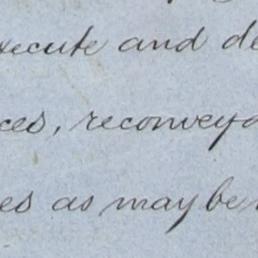 xecute and de
ces, reconveya
es as may be